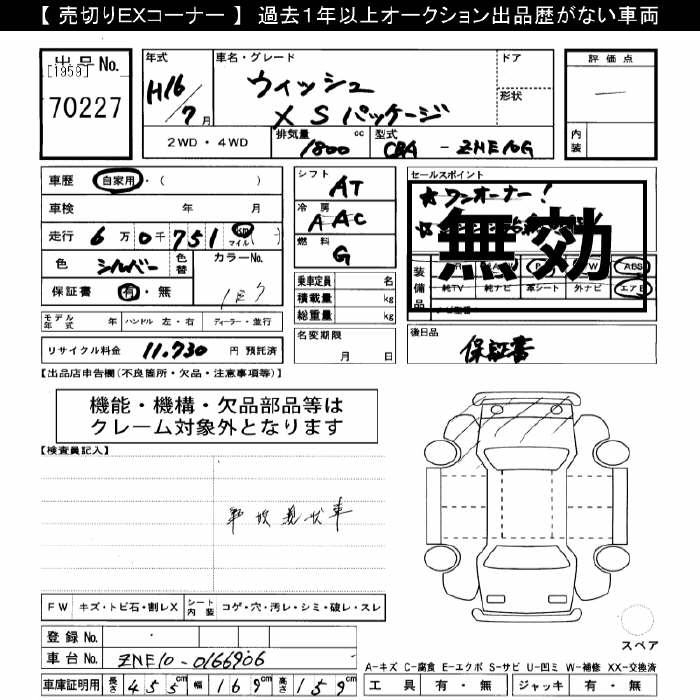 【 売切りEXコーナー 】 過去１年以上オークション出品歴がない車両
出品No.
[1959]
70227
年式
H16/7月
車名・グレード
ウィッシュ
X Sパッケージ
ドア
形状
2WD・4WD
排気量 1800 cc
型式 CBA - ZNE10G
評価点
―
内装
車歴 自家用・( )
車検 年 月
走行 6万0千751 km マイル ( )
色 シルバー 色替
カラーNo.
1E7
保証書 有・無
モデル年式 年 ハンドル 左・右 ディーラー・並行
リサイクル料金 11,730 円 預託済
シフト AT
冷房 AAC
燃料 G
乗車定員 名
積載量 kg
総重量 kg
名変期限
月 日
セールスポイント
★ワンオーナー!
無効
装備品
ABS
純TV 純ナビ 革シート 外ナビ エアB
後日品
保証書
【出品店申告欄(不良箇所・欠品・注意事項等)】
機能・機構・欠品部品等は
クレーム対象外となります
【検査員記入】
事故現状車
FW キズ・トビ石・割レX シート内装 コゲ・穴・汚レ・シミ・破レ・スレ
登録No.
車台No. ZNE10-0166906
車庫証明用 長さ 455cm 幅 169cm 高さ 159
スペア
A-キズ C-腐食 E-エクボ S-サビ U-凹ミ W-補修 XX-交換済
工具 有・無 ジャッキ 有・無